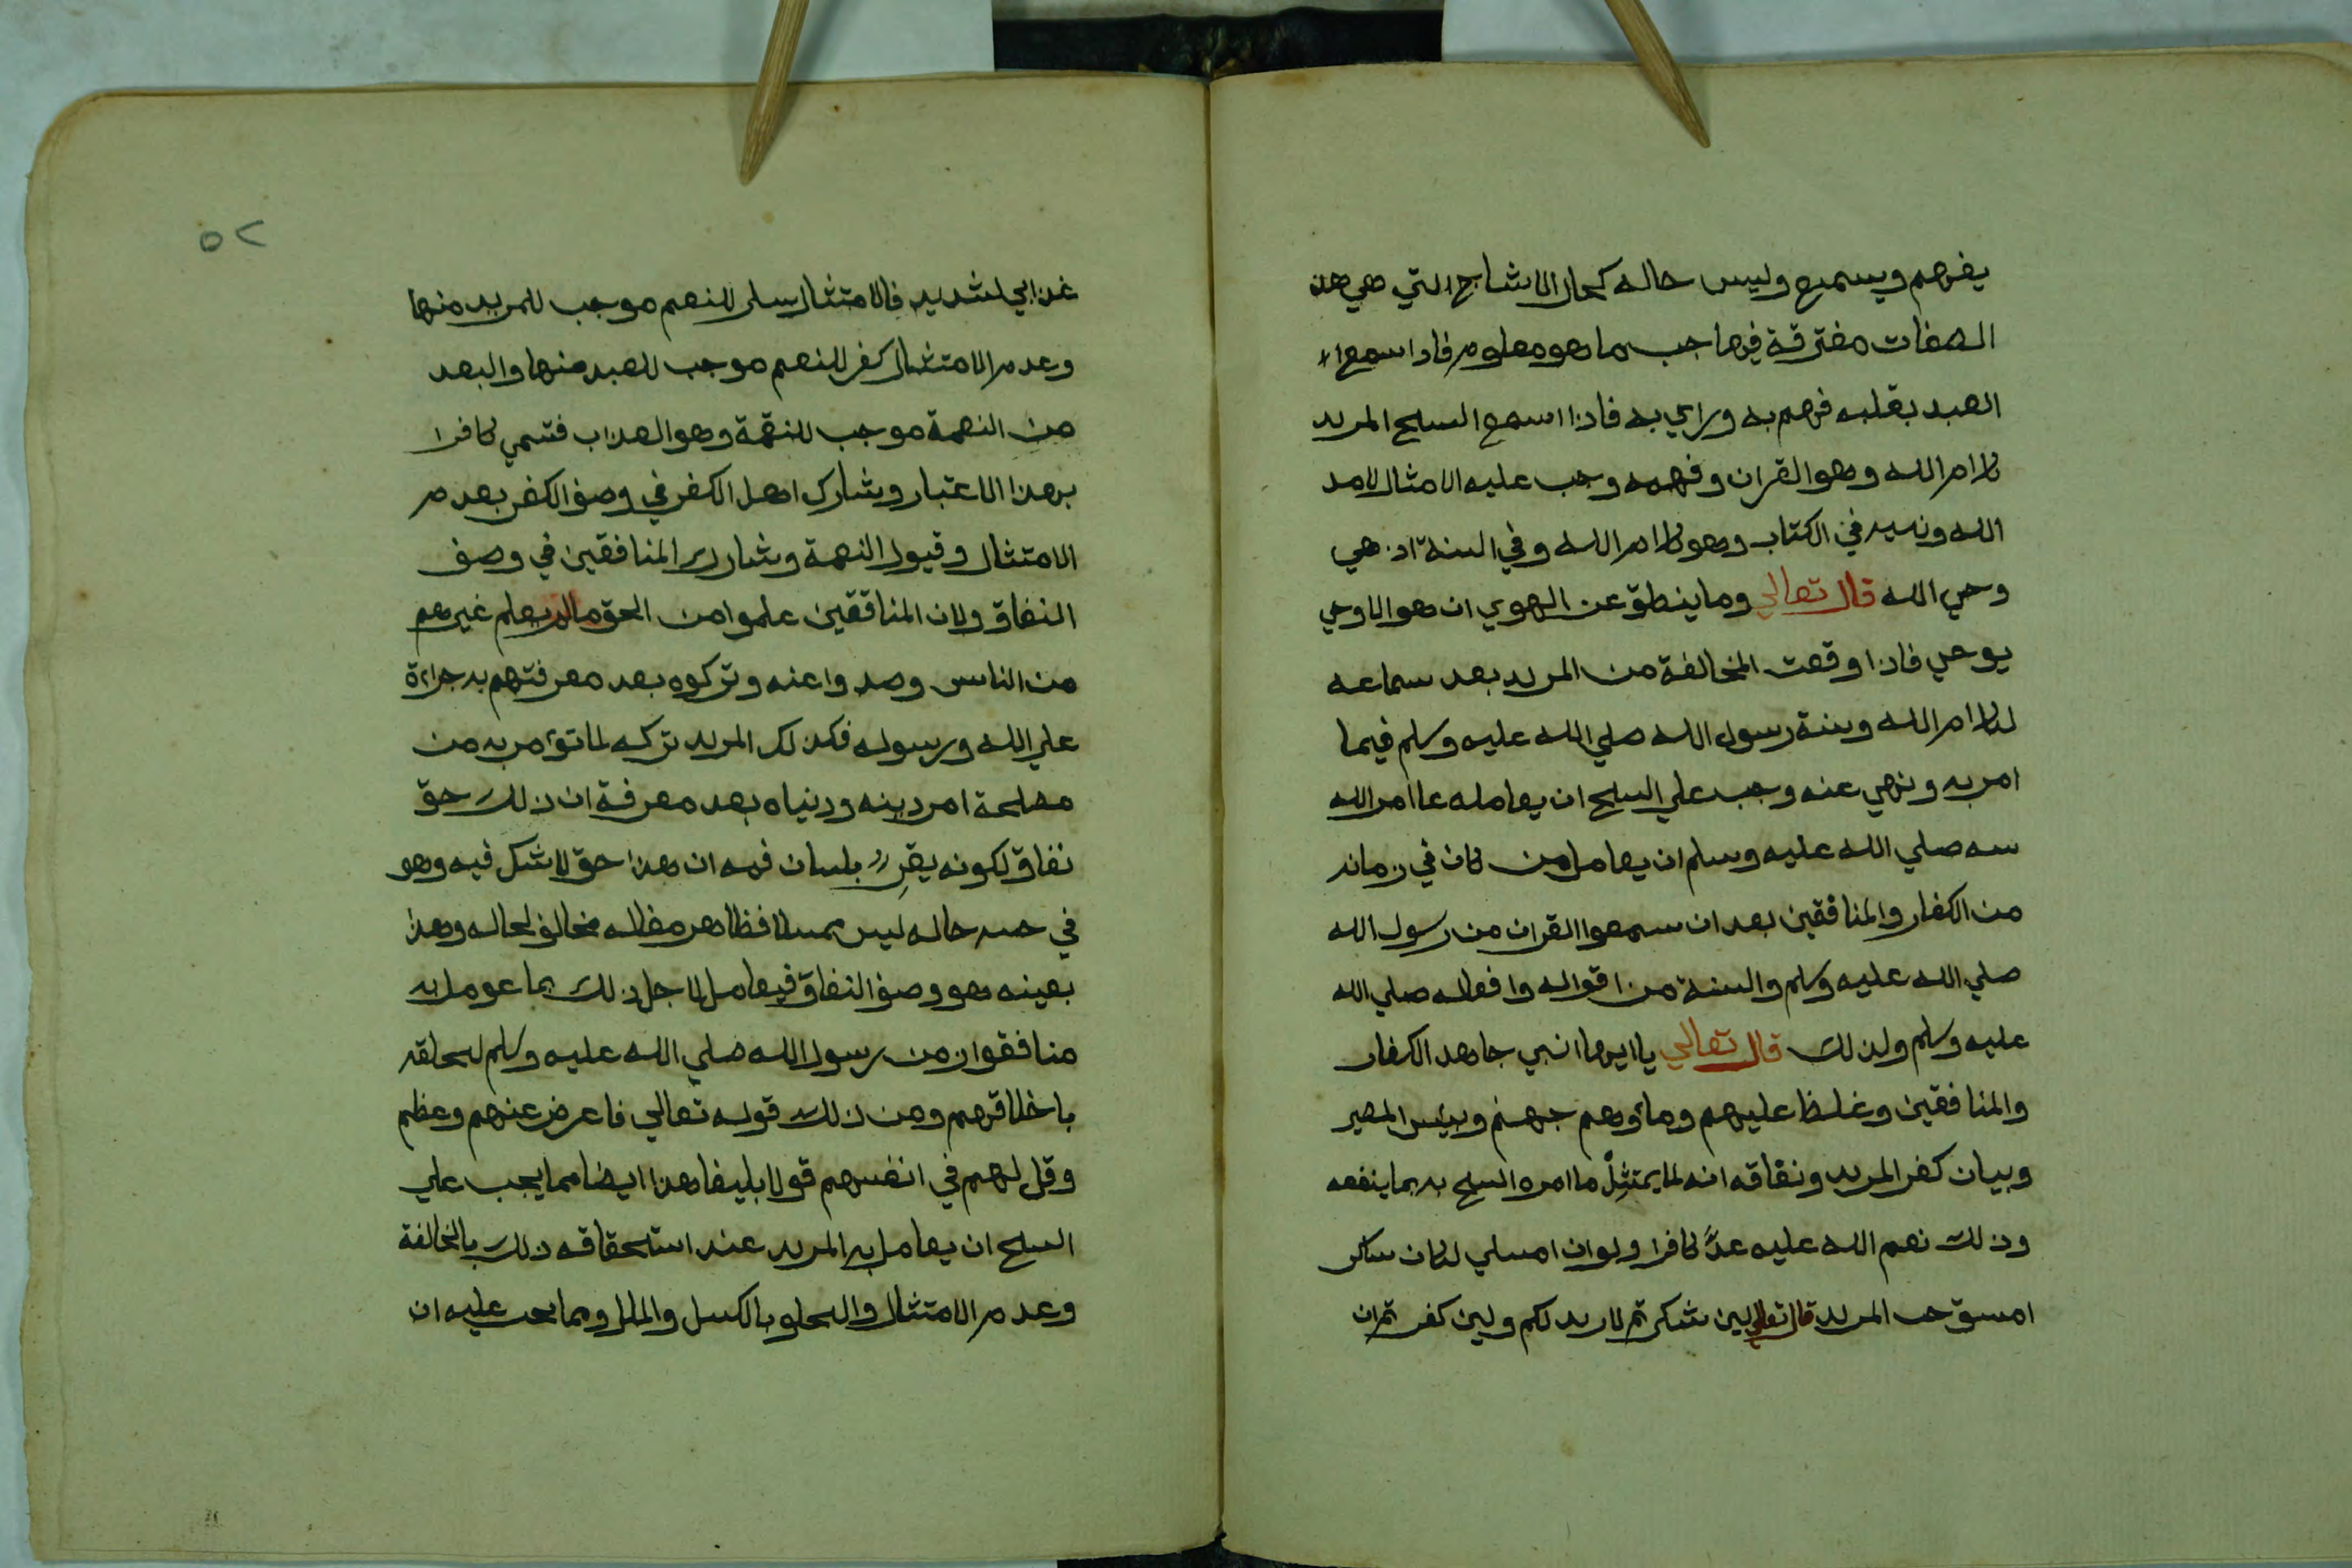 يفهم ويسمع وليس حاله كحال الاشباح التي هي هذه
الصفات مفترقة فيها حسب ما هو معلوم فاذا سمع
العبد بقلبه فهم به وراي به فاذا اسمع الشيخ المريد
كلام الله وهو القران وفهمه وجب عليه الامثال لامر
الله ونهيه في الكتاب وهو كلام الله وفي السنة اذ هي
وحي الله قال تعالي وما ينطق عن الهوي ان هو الا وحي
يوحي فاذا وقعت المخالفة من المريد بعد سماعه
لكلام الله وسنة رسول الله صلي الله عليه وسلم فيما
امر به ونهي عنه وجب علي الشيخ ان يعامله بما امر الله
نبيه صلي الله عليه وسلم ان يعامل من كان في زمانه
من الكفار والمنافقين بعد ان سمعوا القران من رسول الله
صلي الله عليه وسلم والسنة من اقواله وافعاله صلي الله
عليه وسلم ولذلك قال تعالي يا ايها النبي جاهد الكفار
والمنافقين وغلظ عليهم وماوهم جهنم وبيس المصير
وبيان كفر المريد ونفاقه انه لما يمتثل ما امره الشيخ به بما ينفعه
وذلك نعم الله عليه عدّ كافرا ولو ان امتثل لكان شاكر
المريد قال تعالي لين شكرتم لازيدنكم ولين كفرتم ان
٥٢
عذابي لشديد فالامتثال شكر للنعم موجب للمزيد منها
وعدم الامتثال كفر للنعم موجب للصد منها والبعد
من النعمة موجب للنقمة وهو العذاب فتسمي كافرا
بهذا الاعتبار وشارك اهل الكفر في وصف الكفر بعدم
الامتثال وقبول النعمة وشارك المنافقين في وصف
النفاق ولان المنافقين علموا من الحق ما لم يعلم غيرهم
من الناس وصدوا عنه وتركوه بعد معرفتهم به جراءة
علي الله ورسوله فكذلك المريد تركه لما تؤمر به من
مصلحة امر دينه ودنياه بعد معرفة ان ذلك حق
نفاق لكونه يقر بلسان فمه ان هذا حق لا شك فيه وهو
في حاله ليس ممتثلا فظاهر مقاله مخالف لحاله وهذا
بعينه هو وصف النفاق فيعامل لاجل ذلك بما عومل به
منافقوا زمن رسول الله صلي الله عليه وسلم لتخلقه
باخلاقهم ومن ذلك قوله تعالي فاعرض عنهم وعظهم
وقل لهم في انفسهم قولا بليغا هذا ايضا مما يجب علي
الشيخ ان يعامل به المريد عند استحقاقه ذلك بالمخالفة
وعدم الامتثال والتخلق بالكسل والملل ومما يجب عليه ان